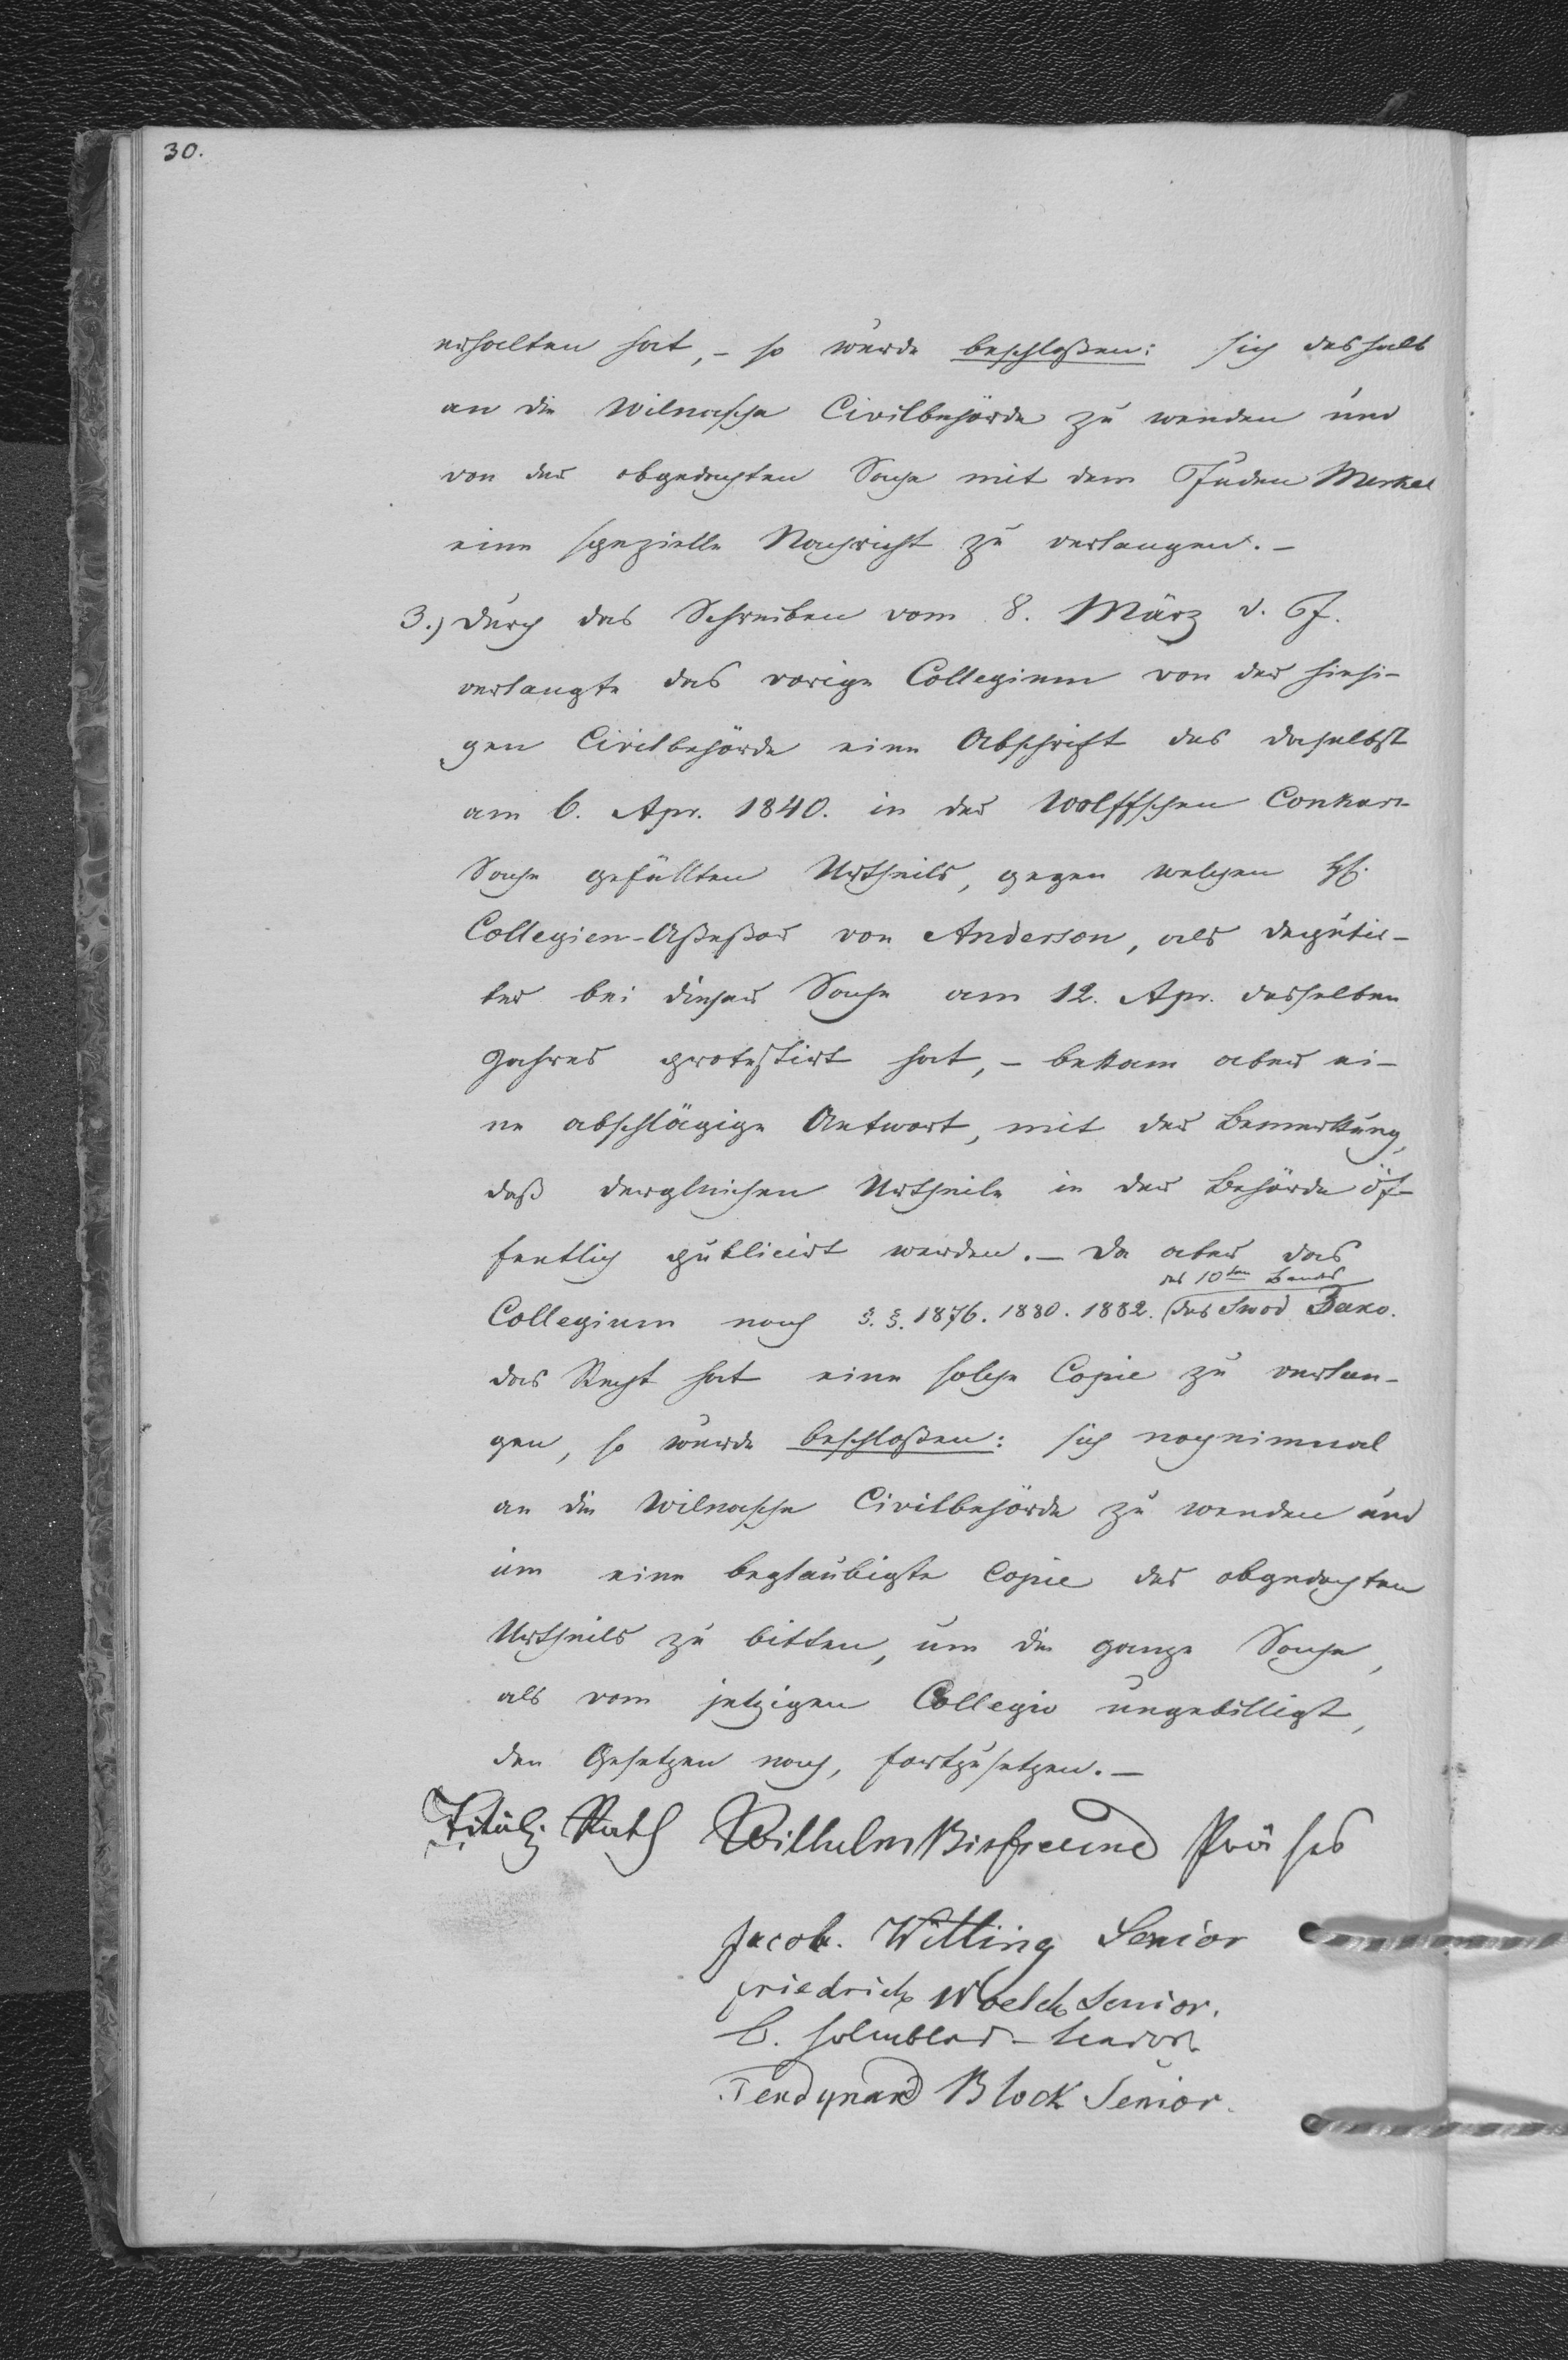 30.
erhalten hat, – so wurde beschloßen: sich deshalb
an die Wilnasche Civilbehörde zu wenden und
von der obgedachten Sache mit dem Juden Merkel
eine spezielle Nachricht zu verlangen. –
3.) Durch das Schreiben vom 8. März d. J.
verlangte das vorige Collegium von der hiesi-
gen Civilbehörde eine Abschrift des daselbst
am 6. Apr. 1840. in der Wolffschen Conkurs-
Sache gefällten Urtheils, gegen welchen H.
Collegien-Aßeßor von Anderson, als deputir-
ter bei dieser Sache am 12. Apr. desselben
Jahres protestirt hat, – bekam aber ei-
ne abschlägige Antwort, mit der Bemerkung,
daß dergleichen Urtheile in der Behörde öf-
fentlich publicirt werden. – Da aber das
des 10ten Bandes
Collegium nach §. §. 1876. 1880. 1882. des Swod Зако.
das Recht hat eine solche Copie zu verlan-
gen, so wurde beschloßen: sich nocheinmal
an die Wilnasche Civilbehörde zu wenden und
um eine beglaubigte Copie des obgedachten
Urtheils zu bitten, um die ganze Sache,
als vom jetzigen Collegio ungebilligt,
den Gesetzen nach, fortzusetzen. –
Titulj. Rath Wilhelm Birfreund Präses
Jacob. Witting Senior
Friedrich Woelck Senior.
C. Holmblad – Senior.
Ferdynand Block Senior.